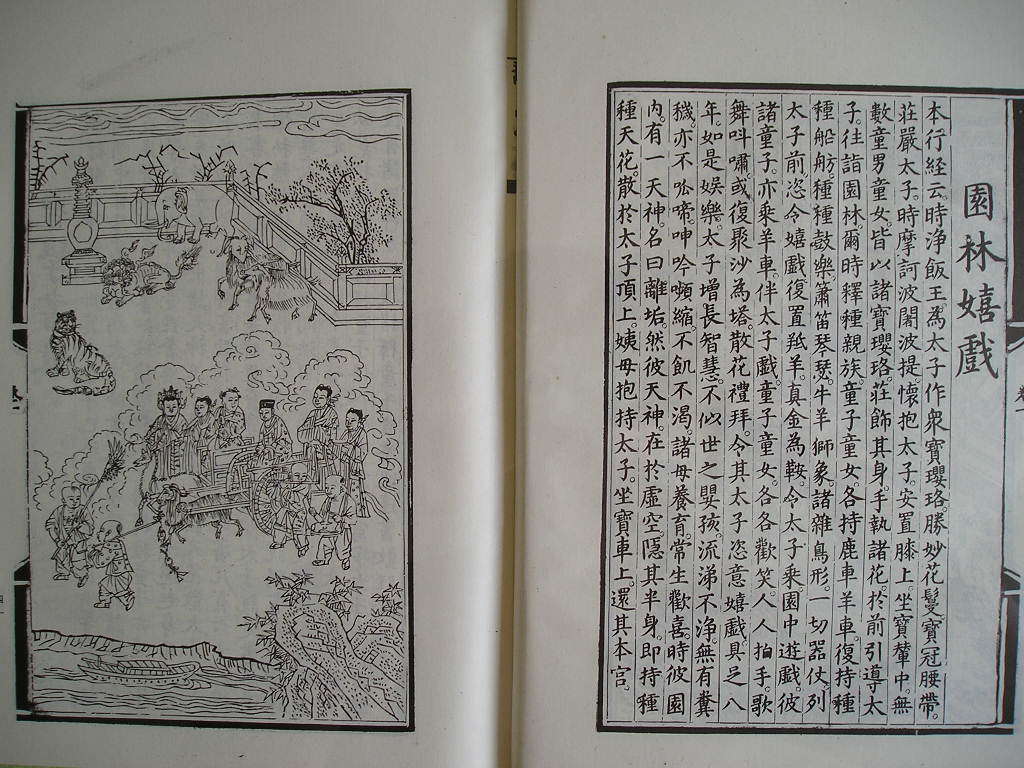 園林嬉戲
本行経云。時淨飯王。為太子作衆寶瓔珞。勝妙花鬘寶冠腰帶。
莊嚴太子。時摩訶波闍波提。懷抱太子。安置膝上。坐寶輦中。無
數童男童女。皆以諸寶瓔珞。莊飾其身。手執諸花。於前引導太
子。往詣園林。爾時釋種親族。童子童女。各持鹿車羊車。復持種
種船舫。種種鼓樂。簫笛琴瑟。牛羊獅象。諸雜鳥形。一切器仗。列
太子前。恣令嬉戲。復置羝羊。真金為鞍。令太子乘。園中遊戲。彼
諸童子。亦乘羊車。伴太子戲。童子童女。各各歡笑。人人拍手。歌
舞叫嘯。或復聚沙為塔。散花禮拜。令其太子恣意嬉戲。具足八
年。如是娛樂。太子增長智慧。不似世之嬰孩。流涕不淨。無有糞
穢。亦不呱啼。呻吟嚬縮。不飢不渴。諸母養育。常生歡喜。時彼園
內。有一天神。名曰離垢。然彼天神。在於虛空。隱其半身。即持種
種天花。散於太子頂上。姨母抱持太子。坐寶車上。還其本宮。
卷一